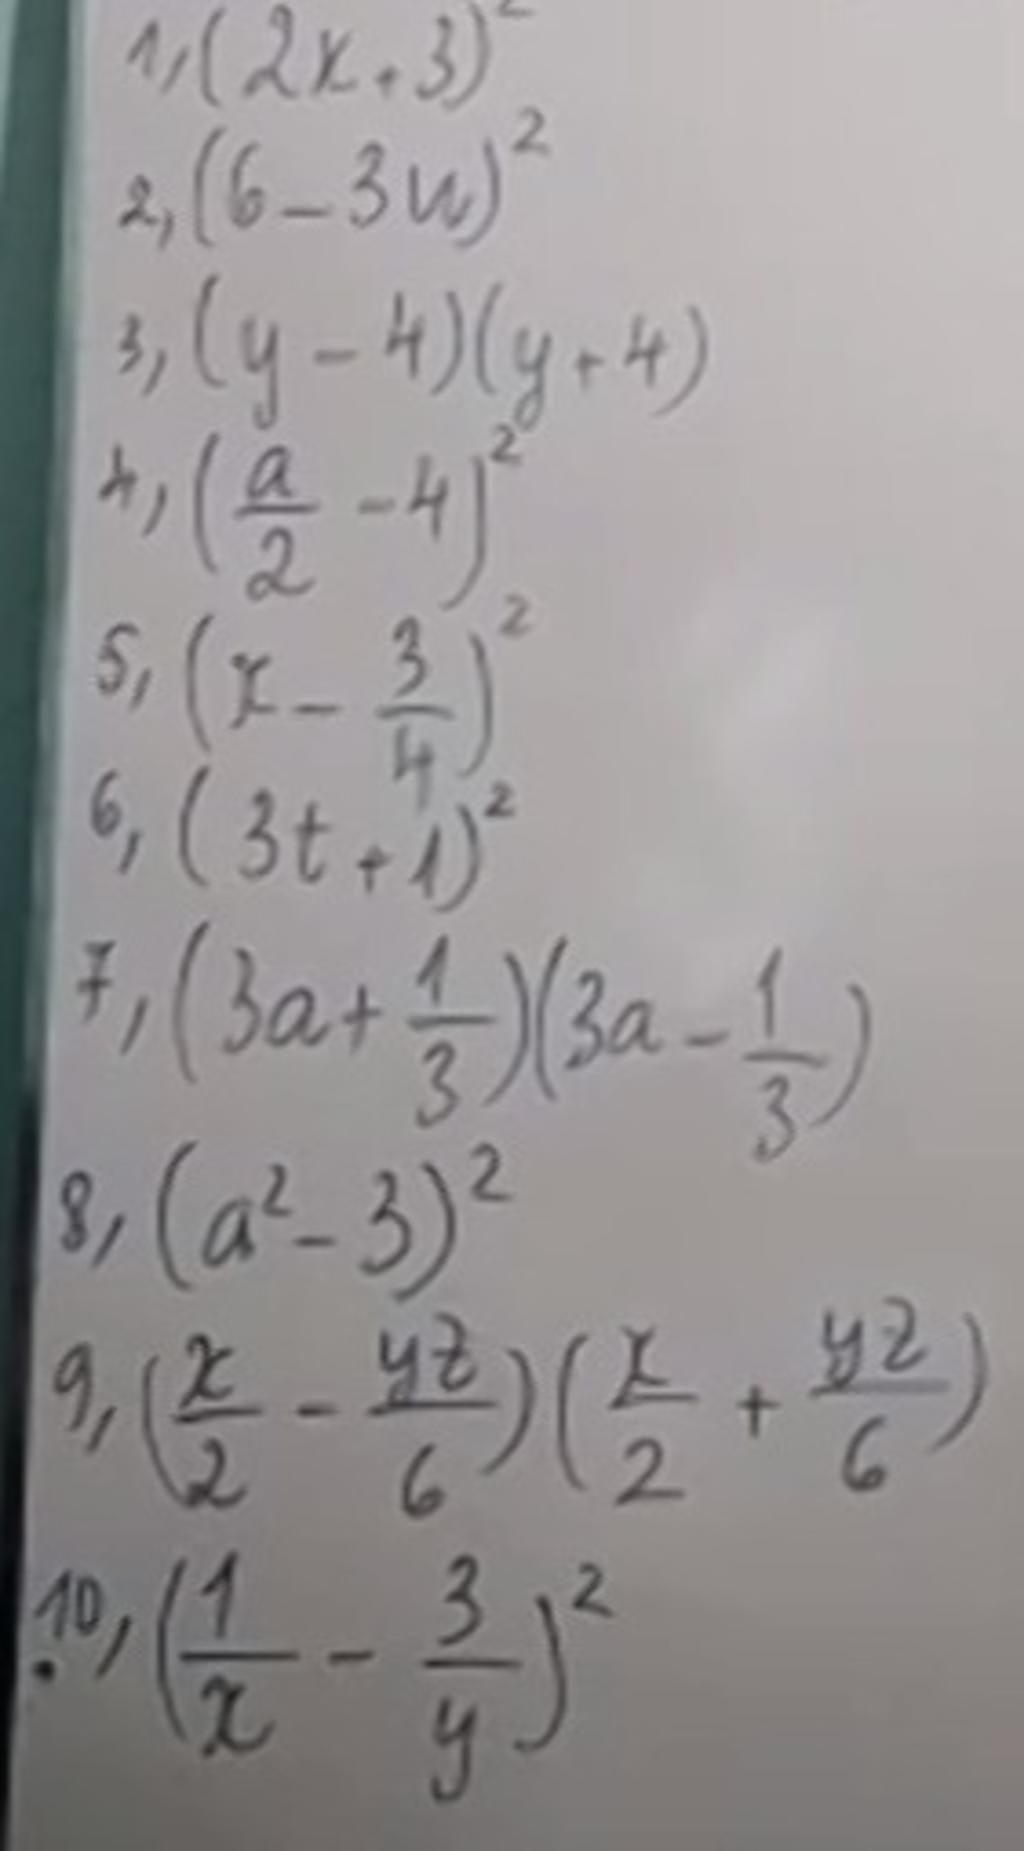 1, (2x+3)²
2, (6-3u)²
3, (y-4)(y+4)
4, (a/2 -4)²
5, (x- 3/4)²
6, (3t+1)²
7, (3a+ 1/3)(3a- 1/3)
8, (a²-3)²
9, (x/2 - yz/6)(x/2 + yz/6)
10, (1/x - 3/y)²